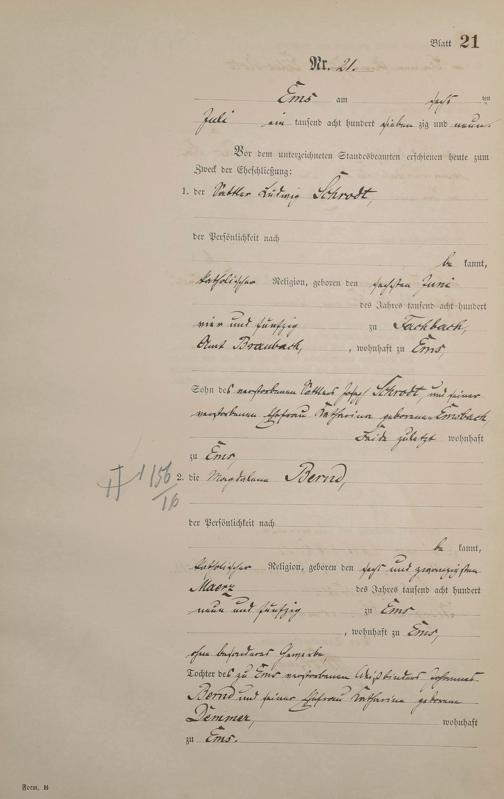 Blatt 21
Nr. 21.
Ems am sechs ten
Juli ein tausend acht hundert sieben zig und neun.
Vor dem unterzeichneten Standesbeamten erschienen heute zum
Zweck der Eheschließung:
1. der Sattler Ludwig Schrodt,
der Persönlichkeit nach
be kannt,
katholischer Religion, geboren den sechsten Juni
des Jahres tausend acht hundert
vier und fünfzig zu Fachbach,
Amt Braubach, , wohnhaft zu Ems,
Sohn des verstorbenen Sattlers Josef Schrodt, und seiner
verstorbenen Ehefrau Katharina geborenen Emsbach,
Beide zuletzt wohnhaft
zu Ems,
1156/16
2. die Magdalena Bernd,
der Persönlichkeit nach
be kannt,
katholischer Religion, geboren den sechs und zwanzigsten
Maerz des Jahres tausend acht hundert
neun und fünfzig zu Ems
, wohnhaft zu Ems,
ohne besonderes Gewerbe,
Tochter des zu Ems verstorbenen Weißbinders Johannes
Bernd und seiner Ehefrau Katharina geborenen
Demmer, wohnhaft
zu Ems.
Form. B